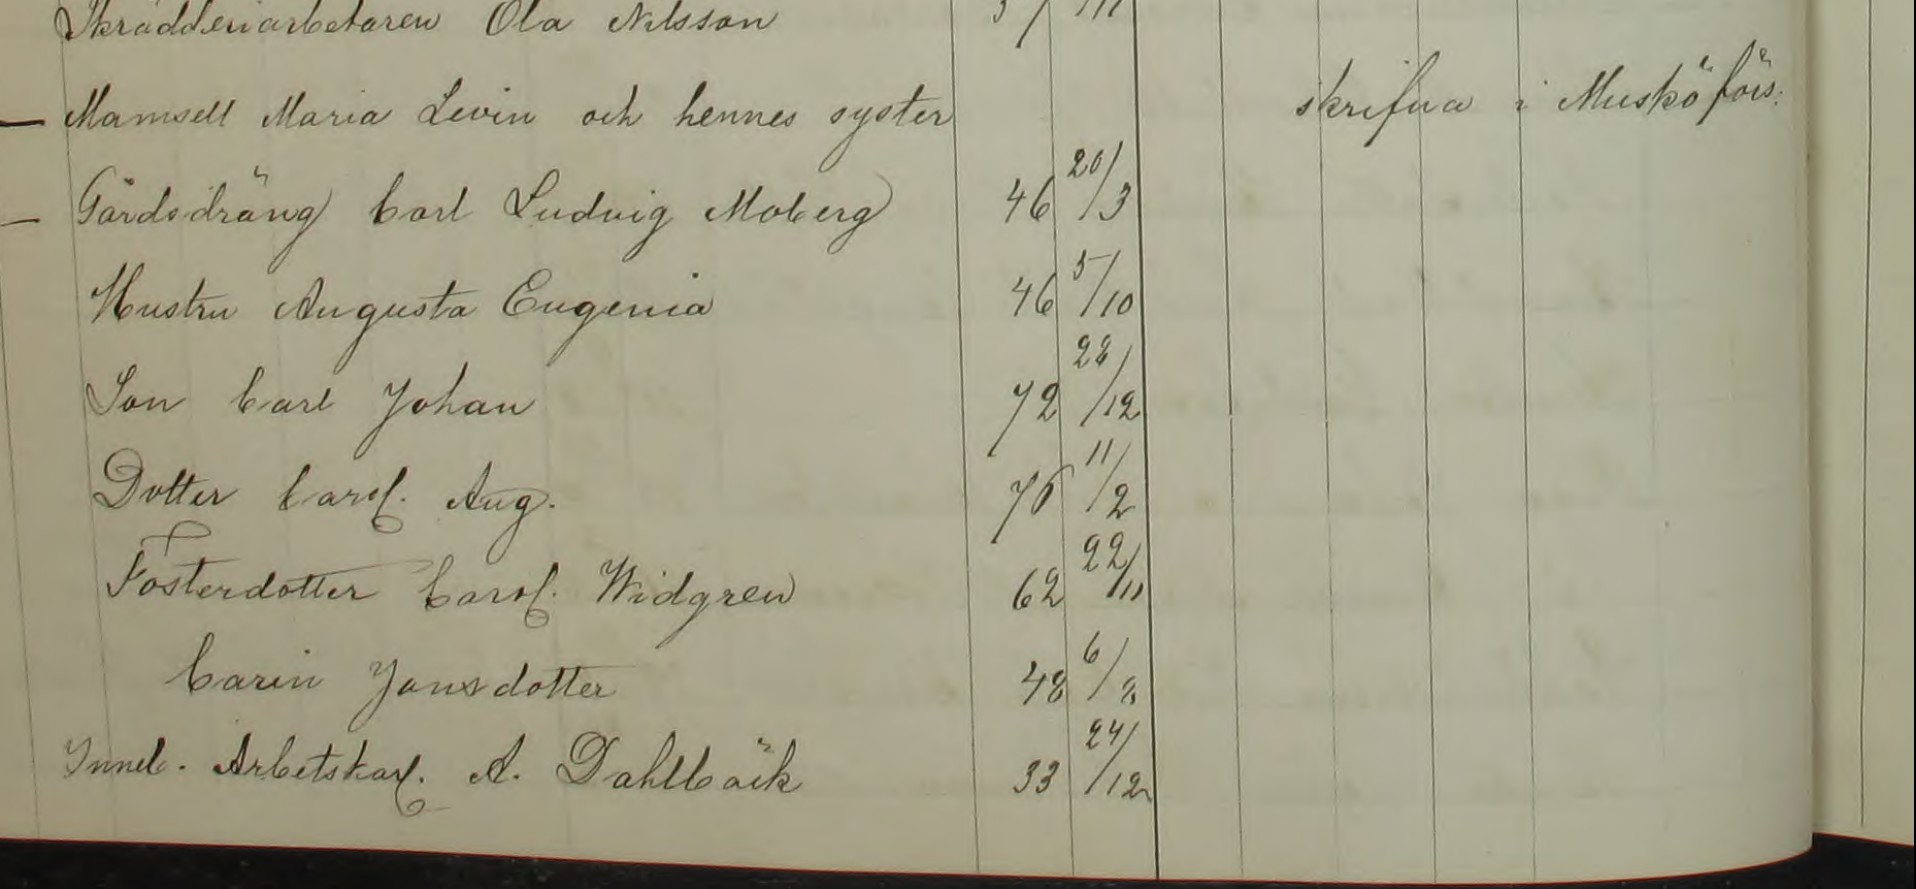 Skrädderiarbetaren Ola Nilsson
Mamsell Maria Levin och hennes syster skrifna i Muskö förs:
Gårdsdräng Carl Ludvig Moberg 46 20/3
Hustru Augusta Eugenia 46 5/10
Son Carl Johan 72 28/12
Dotter Carol. Aug. 76 11/2
Fosterdotter Carol. Widgren 62 22/11
Carin Jansdotter 48 6/8
Inneb. Arbetskarl. A. Dahlbäck 33 24/12